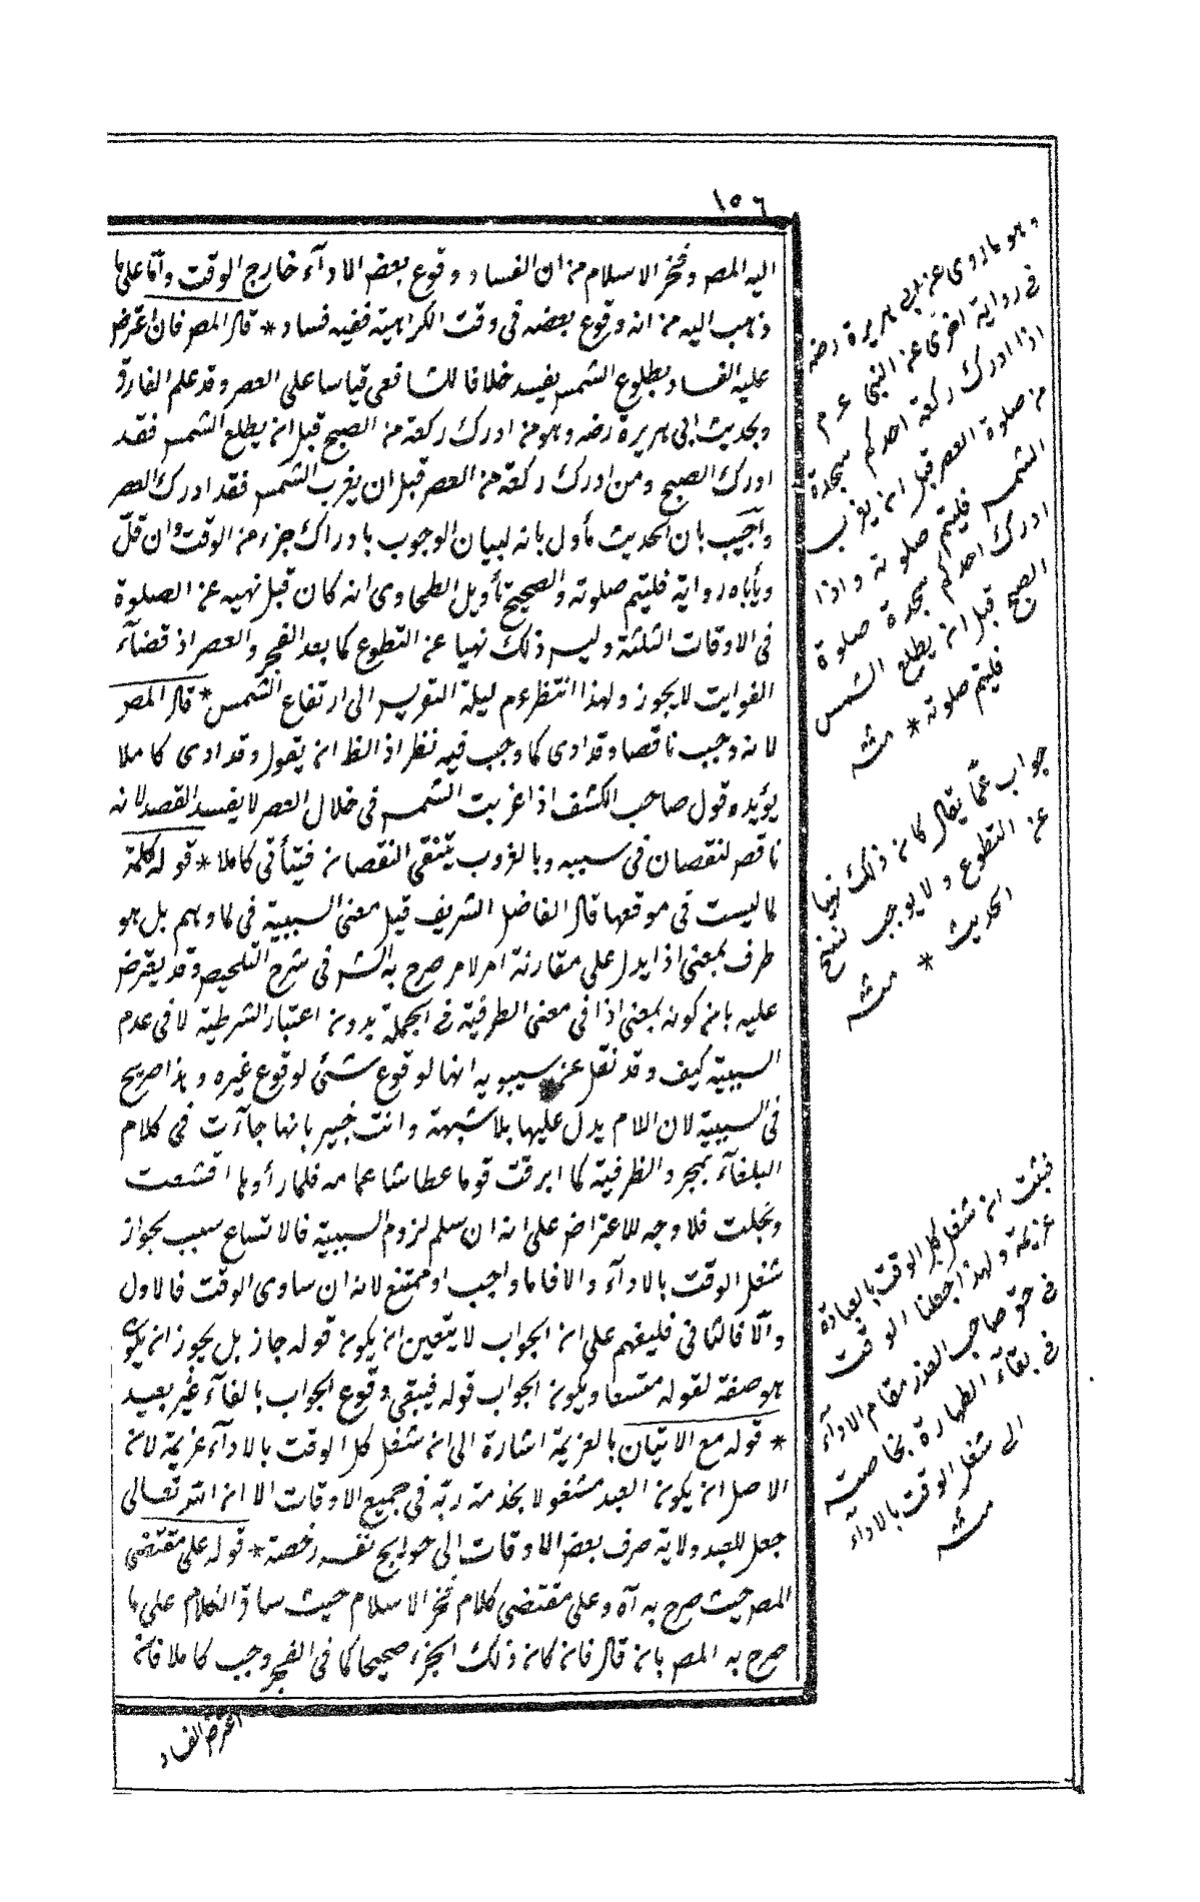 ١٥٦
اليه المص وفخر الاسلام من ان الفساد وقوع بعض الاداء خارج الوقت واما على ما
ذهب اليه من انه وقوع بعضه في وقت الكراهية ففيه فساد * قال المص فان اعترض
عليه الفساد بطلوع الشمس يفسد خلافا للشافعي قياسا على العصر وقد علم الفارق
وبحديث ابي هريرة رضه وهو من ادرك ركعة من الصبح قبل ان يطلع الشمس فقد
ادرك الصبح ومن ادرك ركعة من العصر قبل ان يغرب الشمس فقد ادرك العصر
واجيب بان الحديث مأول بانه لبيان الوجوب بادراك جزء من الوقت وان قل
ويأباه رواية فليتم صلوته والصحيح تأويل الطحاوى انه كان قبل نهيه عن الصلوة
في الاوقات الثلثة وليس ذلك نهيا عن التطوع كما بعد الفجر والعصر اذ قضاء
الفوايت لا يجوز ولهذا انتظر ءم ليلة التعريس الى ارتفاع الشمس * قال المص
لانه وجب ناقصا وقد ادى كما وجب فيه نظر اذ الظ ان يقول وقد ادى كاملا
يؤيده قول صاحب الكشف اذا غربت الشمس في خلال العصر لا يفسد القصد لانه
ناقص لنقصان في سببه وبالغروب ينتفى النقصان فيتأتى كاملا * قوله كلمة
لما ليست في موقعها قال الفاضل الشريف قيل معنى السببية في لما وهم بل هو
ظرف بمعنى اذا يدل على مقارنة امر لامر صرح به الشر في شرح التلخيص وقد يعترض
عليه بان كونه بمعنى اذا في معنى الظرفية في الجملة بدون اعتبار الشرطية لا في عدم
السببية كيف وقد نقل عن سيبويه انها لوقوع شئ لوقوع غيره وهذا صريح
في السببية لان اللام يدل عليها بلا شبهة وانت خبير بانها جاءت في كلام
البلغاء بمجرد الظرفية كما ابرقت قوما عطاشا غمامه فلما رأوها اقشعت
وتجلت فلا وجه للاعتراض على انه ان سلم لزوم السببية فالاتساع سبب لجواز
شغل الوقت بالاداء والا فاما واجب او ممتنع لانه ان ساوى الوقت فالاول
والا فالثاني فليفهم على ان الجواب لا يتعين ان يكون قوله جاز بل يجوز ان يكون
هو صفة لقوله متسعا ويكون الجواب قوله فيبقى وقوع الجواب بالفاء غير بعيد
* قوله مع الاتيان بالعزيمة اشارة الى ان شغل كل الوقت بالاداء عزيمة لان
الاصل ان يكون العبد مشغولا بخدمة ربه في جميع الاوقات الا ان الله تعالى
جعل للعبد ولاية صرف بعض الاوقات الى حوايج نفسه رخصة * قوله على مقتضى
المص حيث صرح به آه وعلى مقتضى كلام فخر الاسلام حيث ساق الكلام على ما
صرح به المص بان قال فان كان ذلك الجزء صحيحا كما في الفجر وجب كاملا فان
اعترض الفساد
وهو ما روى عن ابي هريرة رضه
في رواية اخرى عن النبي ءم
اذا ادرك ركعة احدكم سجدة
من صلوة العصر قبل ان يغرب
الشمس فليتم صلوته واذا
ادرك احدكم سجدة صلوة
الصبح قبل ان يطلع الشمس
فليتم صلوته * منه
جواب عما يقال كان ذلك نهيا
عن التطوع ولا يوجب نسخ
الحديث * منه
فبثت ان شغل كل الوقت بالعبادة
عزيمة ولهذا جعلنا الوقت
في حق صاحب العذر مقام الاداء
في بقاء الطهارة بحاجته
الى شغل الوقت بالاداء
منه